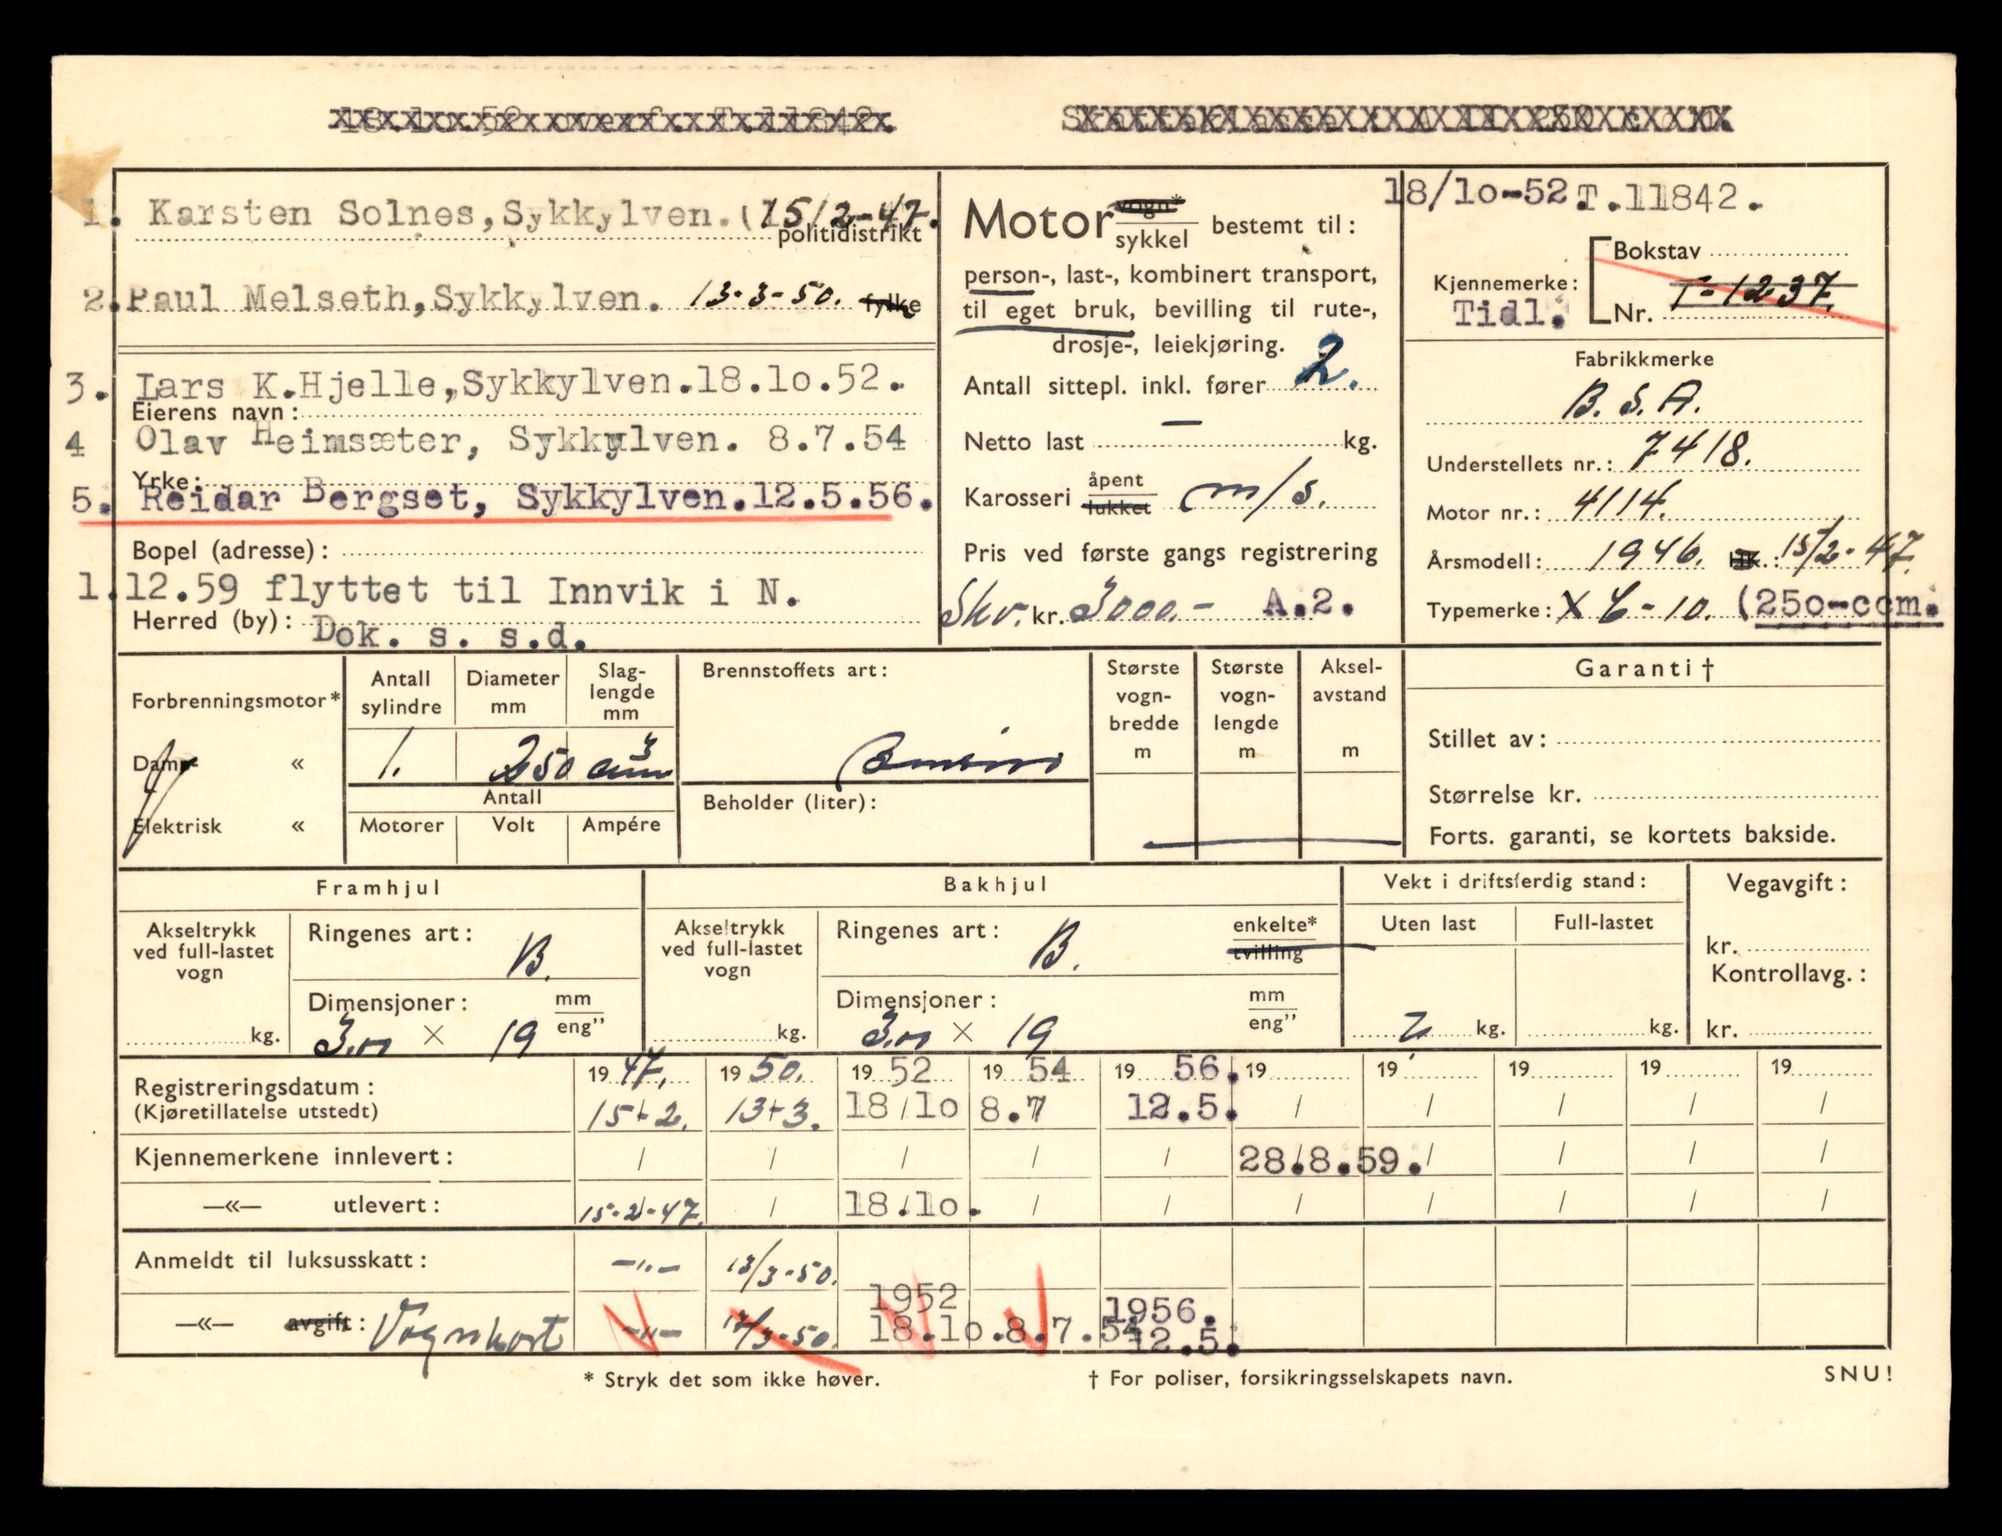 18.10.52 overf. T.11842.
1. Karsten Solnes, Sykkylven. (15/2-47.
politidistrikt
2. Paul Melseth, Sykkylven. 13-3-50. fylke
3. Lars K.Hjelle, Sykkylven. 18.10.52.
Eierens navn:
4 Olav Heimsæter, Sykkylven. 8.7.54
Yrke:
5. Reidar Bergset, Sykkylven. 12.5.56.
Bopel (adresse):
1.12.59 flyttet til Innvik i N.
Herred (by): Dok. s. s.d.
Motor vogn*
sykkel bestemt til:
person-, last-, kombinert transport,
til eget bruk, bevilling til rute-,
drosje-, leiekjøring.
Antall sittepl. inkl. fører 2.
Netto last — kg.
Karosseri åpent
lukket m/s.
Pris ved første gangs registrering
Skv. kr. 3000.- A.2.
18/10-52. T.11842.
Kjennemerke: Bokstav
Tidl. Nr. T-1237.
Fabrikkmerke
B.S.A.
Understellets nr.: 7418.
Motor nr.: 4114.
Årsmodell: 1946. HK.: 15/2-47.
Typemerke: X C-10. (250-ccm.
Forbrenningsmotor*
Damp- «
Elektrisk «
Antall sylindre
Diameter mm
Slag-lengde mm
1. 250 cm3
Antall
Motorer Volt Ampére
Brennstoffets art:
Bensin
Beholder (liter):
Største vogn-bredde m
Største vogn-lengde m
Aksel-avstand m
Garanti †
Stillet av:
Størrelse kr.
Forts. garanti, se kortets bakside.
Framhjul
Akseltrykk ved full-lastet vogn
kg.
Ringenes art: B.
Dimensjoner: mm
3.00 × 19 eng”
Bakhjul
Akseltrykk ved full-lastet vogn
kg.
Ringenes art: B. enkelte*
tvilling
Dimensjoner: mm
3.00 × 19 eng”
Vekt i driftsferdig stand:
Uten last Full-lastet
kg. kg.
Vegavgift:
kr.
Kontrollavg.:
kr.
Registreringsdatum: 19 47. 19 50. 19 52 19 54 19 56. 19 19 19 19 19
(Kjøretillatelse utstedt) 15/2. 13/3. 18/10 8.7 12.5. / / / / /
Kjennemerkene innlevert: / / / / / 28.8.59. / / / /
—«— utlevert: 15-2-47. / 18.10. / / / / / / /
Anmeldt til luksusskatt: —"— 13/3-50.
—«— avgift: Vognkort —"— 17/3-50. 1952 18.10. 8.7.54 1956. 12.5.
* Stryk det som ikke høver.
† For poliser, forsikringsselskapets navn.
SNU!